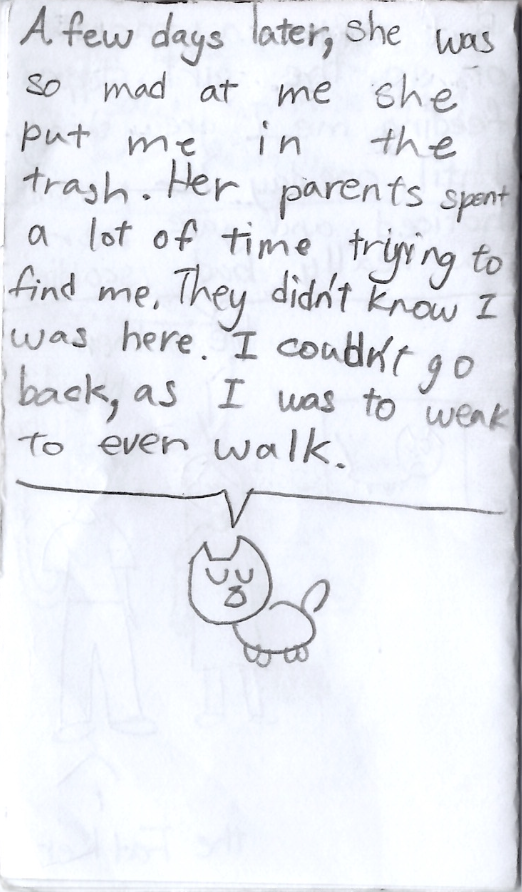 A few days later, she was
so mad at me she
put me in the
trash. Her parents spent
a lot of time trying to
find me. They didn't know I
was here. I couldn't go
back, as I was to weak
to even walk.